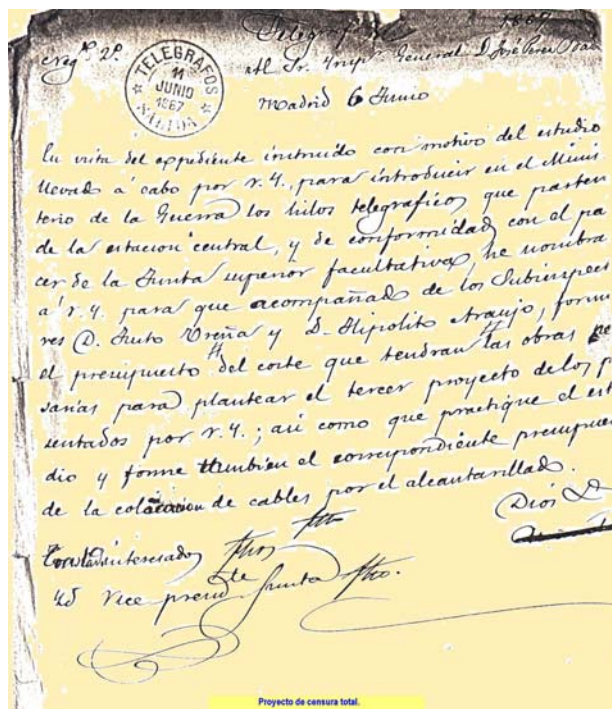 Telegrafos
1867
Neg.º 2.º
TELEGRAFOS
11
JUNIO
1867
SALIDA
Al Sr. Insp.r General D. José Perez
Madrid 6 Junio
En vista del expediente instruido con motivo del estudio
llevado á cabo por V.Y., para introducir en el Minis
terio de la Guerra los hilos telegraficos que parten
de la estacion central, y de conformidad con el pa
cer de la Junta superior facultativa, he nombra
á V.Y. para que acompañado de los Subinspec
res D. Justo Ureña y D. Hipolito Araujo, form
el presupuesto del coste que tendran las obras ne
sarias para plantear el tercer proyecto de los p
sentados por V.Y.; asi como que practique el es
dio y forme tambien el correspondiente presupue
de la colocacion de cables por el alcantarillado.
Dios
interesados
Vice presid.te Junta
Proyecto de censura total.